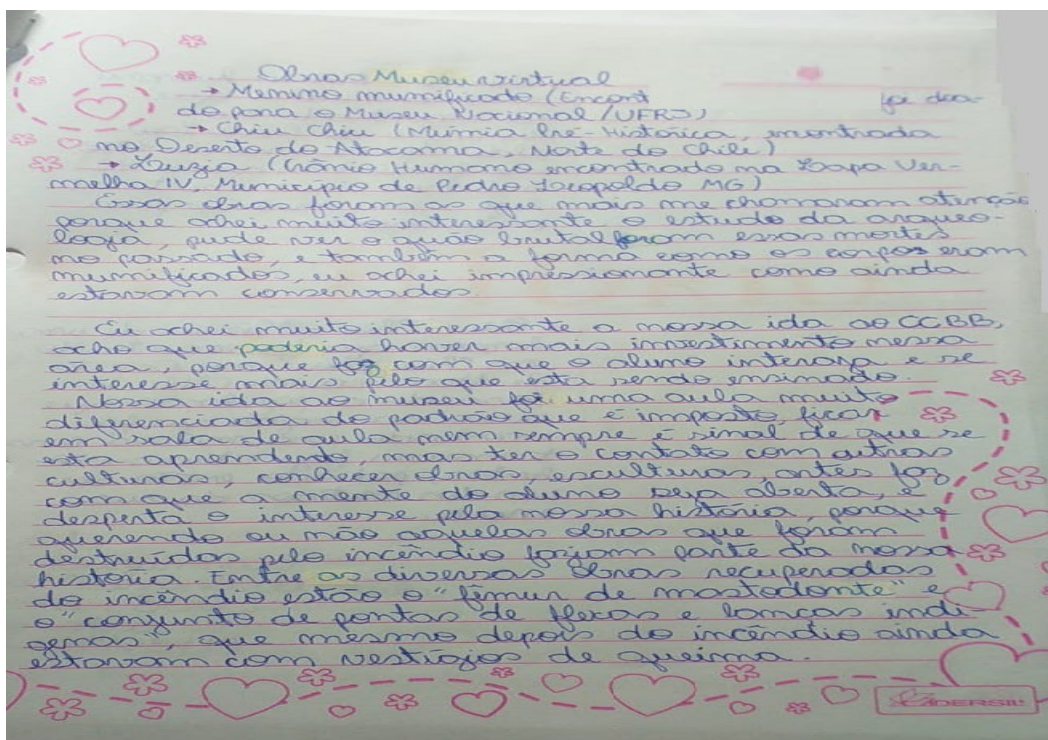 Obras Museu virtual
→ Menino mumificado (Encont foi doa-
do para o Museu Nacional/UFRJ)
→ Chiu Chiu (Múmia Pré-Historica, encontrada
no Deserto do Atacama, Norte do Chile)
→ Luzia (Crânio Humano encontrado na Lapa Ver-
melha IV, Município de Pedro Leopoldo MG)
Essas obras foram as que mais me chamaram atenção
porque achei muito interessante o estudo da arqueo-
logia, pude ver o quão brutal foram essas mortes
no passado, e também a forma como os corpos eram
mumificados, eu achei impressionante como ainda
estavam conservados.
Eu achei muito interessante a nossa ida ao CCBB,
acho que poderia haver mais investimento nessa
area, porque faz com que o aluno interaja e se
interesse mais pelo que esta sendo ensinado.
Nossa ida ao museu foi uma aula muito
diferenciada do padrão que é imposto, ficar
em sala de aula nem sempre é sinal de que se
esta aprendendo, mas ter o contato com outras
culturas, conhecer obras, esculturas, artes faz
com que a mente do aluno seja aberta, e
desperta o interesse pela nossa história, porque
querendo ou não aquelas obras que foram
destruídas pelo incêndio faziam parte da nossa
história. Entre as diversas obras recuperadas
do incêndio estão o "fêmur de mastodonte" e
o "conjunto de pontas de flexas e lanças indí
genas", que mesmo depois do incêndio ainda
estavam com vestígios de queima.